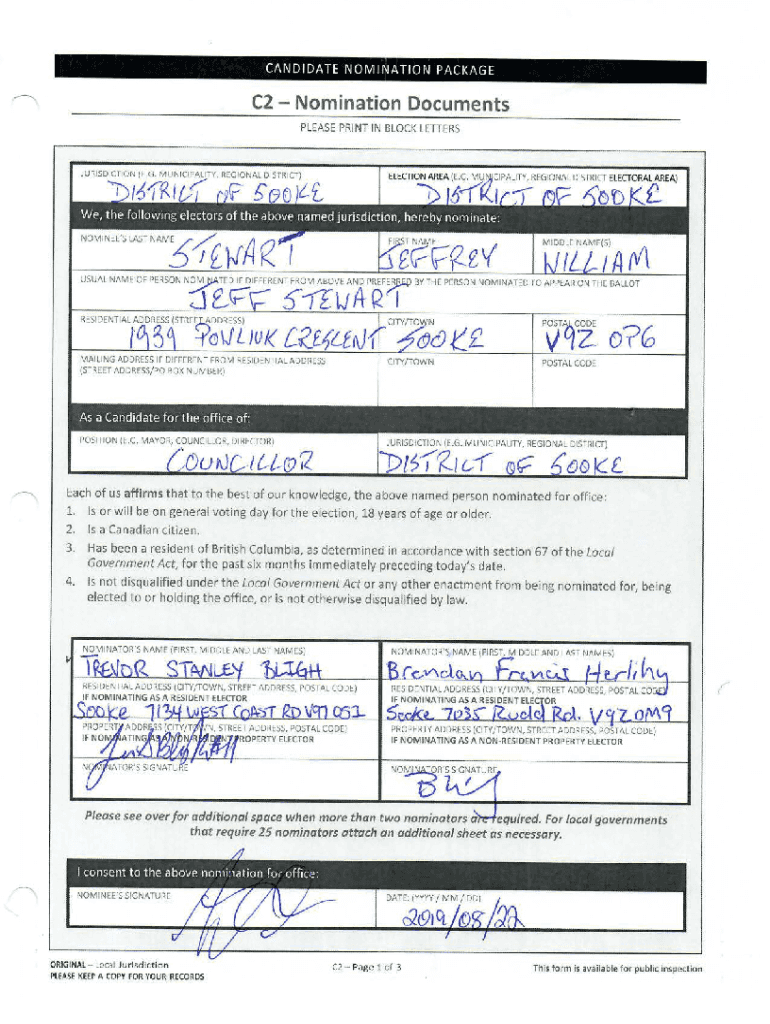 CANDIDATE NOMINATION PACKAGE
C2 – Nomination Documents
PLEASE PRINT IN BLOCK LETTERS
JURISDICTION (E.G. MUNICIPALITY, REGIONAL DISTRICT) ELECTION AREA (E.G. MUNICIPALITY, REGIONAL DISTRICT ELECTORAL AREA)
DISTRICT OF SOOKE DISTRICT OF SOOKE
We, the following electors of the above named jurisdiction, hereby nominate:
NOMINEE'S LAST NAME FIRST NAME MIDDLE NAME(S)
STEWART JEFFREY WILLIAM
USUAL NAME OF PERSON NOMINATED IF DIFFERENT FROM ABOVE AND PREFERRED BY THE PERSON NOMINATED TO APPEAR ON THE BALLOT
JEFF STEWART
RESIDENTIAL ADDRESS (STREET ADDRESS) CITY/TOWN POSTAL CODE
1939 POWLIUK CRESCENT SOOKE V9Z 0P6
MAILING ADDRESS IF DIFFERENT FROM RESIDENTIAL ADDRESS CITY/TOWN POSTAL CODE
(STREET ADDRESS/PO BOX NUMBER)
As a Candidate for the office of:
POSITION (E.G. MAYOR, COUNCILLOR, DIRECTOR) JURISDICTION (E.G. MUNICIPALITY, REGIONAL DISTRICT)
COUNCILLOR DISTRICT OF SOOKE
Each of us affirms that to the best of our knowledge, the above named person nominated for office:
1. Is or will be on general voting day for the election, 18 years of age or older.
2. Is a Canadian citizen.
3. Has been a resident of British Columbia, as determined in accordance with section 67 of the Local
Government Act, for the past six months immediately preceding today's date.
4. Is not disqualified under the Local Government Act or any other enactment from being nominated for, being
elected to or holding the office, or is not otherwise disqualified by law.
NOMINATOR'S NAME (FIRST, MIDDLE AND LAST NAMES) NOMINATOR'S NAME (FIRST, MIDDLE AND LAST NAMES)
TREVOR STANLEY BLIGH Brendan Francis Herlihy
RESIDENTIAL ADDRESS (CITY/TOWN, STREET ADDRESS, POSTAL CODE) RESIDENTIAL ADDRESS (CITY/TOWN, STREET ADDRESS, POSTAL CODE)
IF NOMINATING AS A RESIDENT ELECTOR IF NOMINATING AS A RESIDENT ELECTOR
SOOKE 7134 WEST COAST RD Sooke 7035 Rudd Rd. V9Z0M9
PROPERTY ADDRESS (CITY/TOWN, STREET ADDRESS, POSTAL CODE) PROPERTY ADDRESS (CITY/TOWN, STREET ADDRESS, POSTAL CODE)
IF NOMINATING AS A NON-RESIDENT PROPERTY ELECTOR IF NOMINATING AS A NON-RESIDENT PROPERTY ELECTOR
NOMINATOR'S SIGNATURE NOMINATOR'S SIGNATURE
Please see over for additional space when more than two nominators are required. For local governments
that require 25 nominators attach an additional sheet as necessary.
I consent to the above nomination for office:
NOMINEE'S SIGNATURE DATE: (YYYY / MM / DD)
2019/08/22
ORIGINAL – Local Jurisdiction C2 – Page 1 of 3 This form is available for public inspection
PLEASE KEEP A COPY FOR YOUR RECORDS